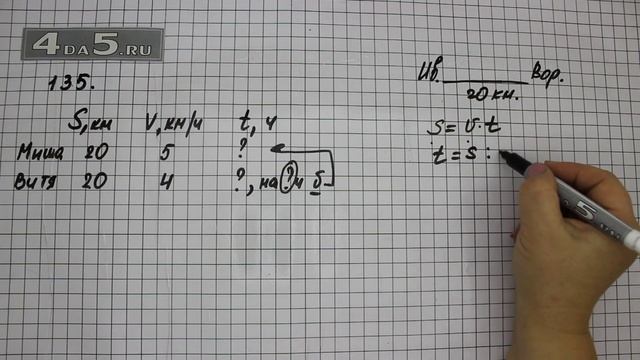 4DA5.RU
135.
Ив. Вор.
20 км.
S, км V, км/ч t, ч
Миша 20 5 ?
Витя 20 4 ?, на ? ч б
S = V · t
t = S :
5